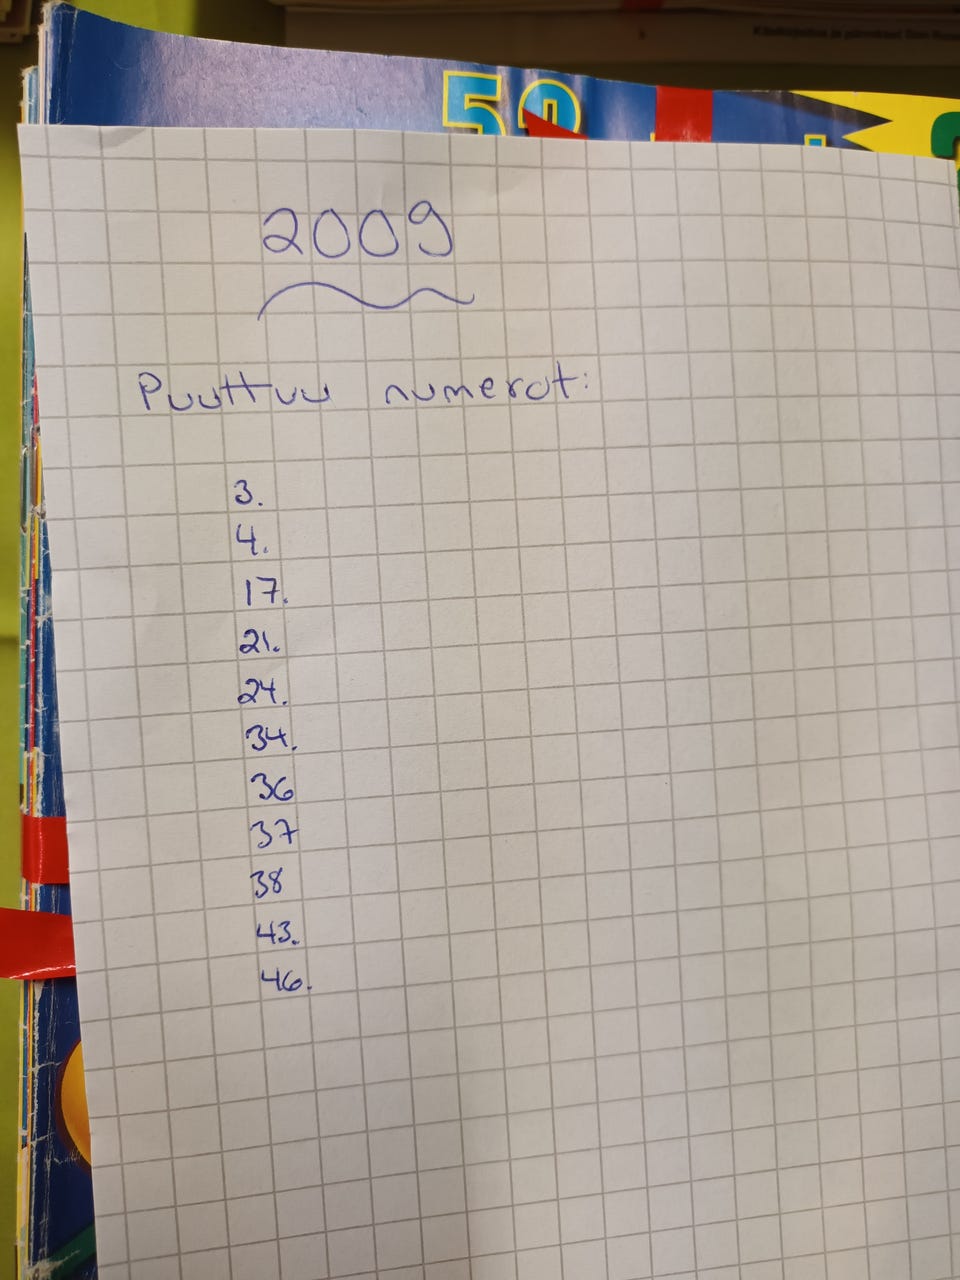 52
2009
Puuttuu numerot:
3.
4.
17.
21.
24.
34.
36
37
38
43.
46.